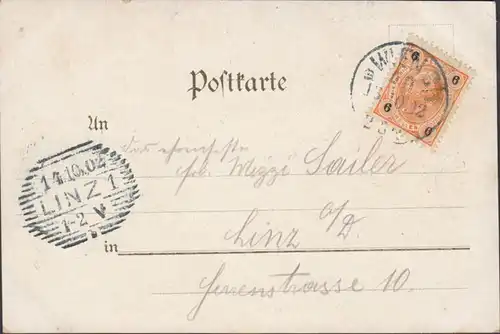 WIEN
6 6
6 6
Postkarte
An
frl. Mizzi Sailer
14.10.02
LINZ 1
1-2 V
in Linz a/D.
Herrenstrasse 10.